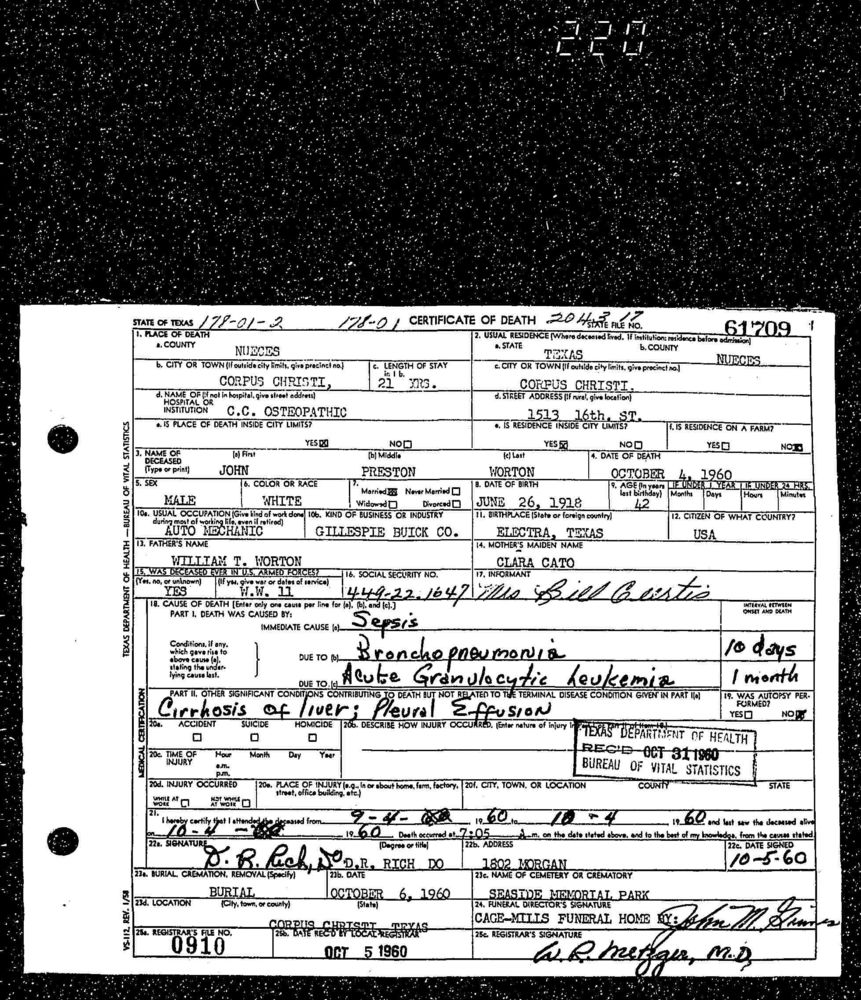 220
STATE OF TEXAS 178-01-2 178-01 CERTIFICATE OF DEATH 204317 STATE FILE NO. 61709 1
1. PLACE OF DEATH
a. COUNTY
NUECES
2. USUAL RESIDENCE (Where deceased lived. If institution: residence before admission)
a. STATE TEXAS b. COUNTY NUECES
b. CITY OR TOWN (If outside city limits, give precinct no.)
CORPUS CHRISTI,
c. LENGTH OF STAY in 1 b.
21 YRS.
c. CITY OR TOWN (If outside city limits, give precinct no.)
CORPUS CHRISTI.
d. NAME OF (If not in hospital, give street address)
HOSPITAL OR
INSTITUTION C.C. OSTEOPATHIC
d. STREET ADDRESS (If rural, give location)
1513 16th. ST.
e. IS PLACE OF DEATH INSIDE CITY LIMITS?
YES NO
e. IS RESIDENCE INSIDE CITY LIMITS?
YES NO
f. IS RESIDENCE ON A FARM?
YES NO
3. NAME OF DECEASED (Type or print)
(a) First (b) Middle (c) Last
JOHN PRESTON WORTON
4. DATE OF DEATH
OCTOBER 4, 1960
5. SEX
MALE
6. COLOR OR RACE
WHITE
7. Married Never Married
Widowed Divorced
8. DATE OF BIRTH
JUNE 26, 1918
9. AGE (In years last birthday)
42
IF UNDER 1 YEAR IF UNDER 24 HRS.
Months Days Hours Minutes
10a. USUAL OCCUPATION (Give kind of work done during most of working life, even if retired)
AUTO MECHANIC
10b. KIND OF BUSINESS OR INDUSTRY
GILLESPIE BUICK CO.
11. BIRTHPLACE (State or foreign country)
ELECTRA, TEXAS
12. CITIZEN OF WHAT COUNTRY?
USA
13. FATHER'S NAME
WILLIAM T. WORTON
14. MOTHER'S MAIDEN NAME
CLARA CATO
15. WAS DECEASED EVER IN U.S. ARMED FORCES?
(Yes, no, or unknown) (If yes, give war or dates of service)
YES W.W. 11
16. SOCIAL SECURITY NO.
449-22-1647
17. INFORMANT
Mrs Bill Curtis
18. CAUSE OF DEATH [Enter only one cause per line for (a), (b), and (c).]
INTERVAL BETWEEN ONSET AND DEATH
PART I. DEATH WAS CAUSED BY:
IMMEDIATE CAUSE (a) Sepsis
Conditions, if any, which gave rise to above cause (a), stating the underlying cause last.
DUE TO (b) Bronchopneumonia 10 days
DUE TO (c) Acute Granulocytic Leukemia 1 month
PART II. OTHER SIGNIFICANT CONDITIONS CONTRIBUTING TO DEATH BUT NOT RELATED TO THE TERMINAL DISEASE CONDITION GIVEN IN PART I(a)
Cirrhosis of liver; Pleural Effusion
19. WAS AUTOPSY PERFORMED?
YES NO
20a. ACCIDENT SUICIDE HOMICIDE
20b. DESCRIBE HOW INJURY OCCURRED. (Enter nature of injury in
TEXAS DEPARTMENT OF HEALTH
REC'D OCT 31 1960
BUREAU OF VITAL STATISTICS
20c. TIME OF INJURY
Hour Month Day Year
a.m.
p.m.
20d. INJURY OCCURRED
WHILE AT WORK NOT WHILE AT WORK
20e. PLACE OF INJURY (e.g., in or about home, farm, factory, street, office building, etc.)
20f. CITY, TOWN, OR LOCATION COUNTY STATE
21. I hereby certify that I attended the deceased from 9-4- 19 60 to 10-4 19 60 and last saw the deceased alive
on 10-4- 19 60 Death occurred at 7:05 A.m. on the date stated above, and to the best of my knowledge, from the causes stated
22a. SIGNATURE (Degree or title)
D. R. Rich, DO D.R. RICH DO
22b. ADDRESS
1802 MORGAN
22c. DATE SIGNED
10-5-60
23a. BURIAL, CREMATION, REMOVAL (Specify)
BURIAL
23b. DATE
OCTOBER 6, 1960
23c. NAME OF CEMETERY OR CREMATORY
SEASIDE MEMORIAL PARK
23d. LOCATION (City, town, or county) (State)
CORPUS CHRISTI TEXAS
24. FUNERAL DIRECTOR'S SIGNATURE
CAGE-MILLS FUNERAL HOME BY: John M. Grimes
25a. REGISTRAR'S FILE NO.
0910
25b. DATE REC'D BY LOCAL REGISTRAR
OCT 5 1960
25c. REGISTRAR'S SIGNATURE
W. R. Metzger, M.D.
TEXAS DEPARTMENT OF HEALTH — BUREAU OF VITAL STATISTICS
MEDICAL CERTIFICATION
VS-112, REV. 1/58